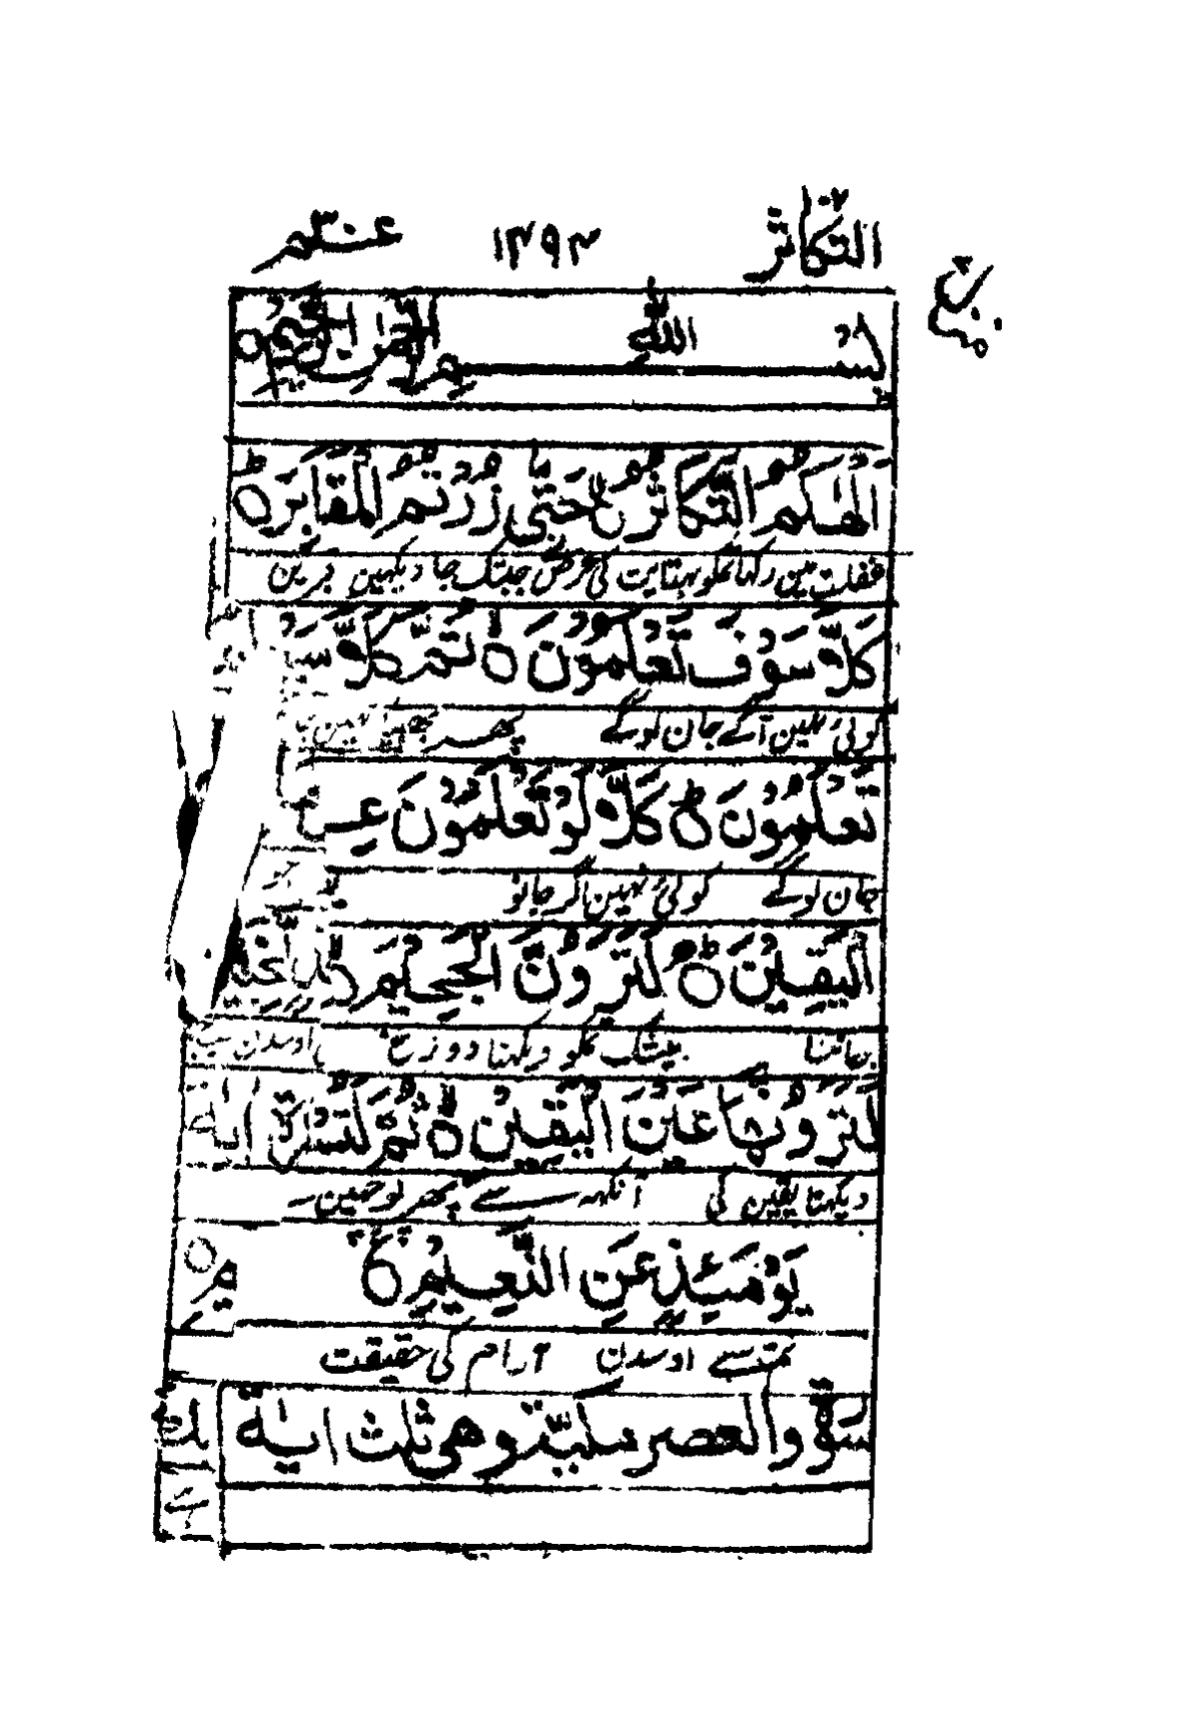 التکاثر ١٠٢ ١٣٩٣ عـــم ٣٠
بســـــم اللّٰه الرحمٰن الرحیم ○
اَلْهٰىكُمُ التَّكَاثُرُ ۙ حَتّٰى زُرْتُمُ الْمَقَابِرَ ؕ
غفلت مین رکہا تمکو بہتایت کی حرص جبتک جا دیکہین قبرین
كَلَّا سَوْفَ تَعْلَمُوْنَ ۙ ثُمَّ كَلَّا
کوئی نہین آگے جان لوگے پھر
تَعْلَمُوْنَ ؕ كَلَّا لَوْ تَعْلَمُوْنَ
جان لوگے کوئی نہین اگر جانو
الْيَقِيْنِ ؕ لَتَرَوُنَّ الْجَحِيْمَ ۙ
جاننا بیشک تمکو دیکہنا دوزخ اوسدن
لَتَرَوُنَّهَا عَيْنَ الْيَقِيْنِ ۙ ثُمَّ لَتُسْئَلُنَّ
دیکہنا یقین کی آنکہہ سے پھر پوچہین
يَوْمَئِذٍ عَنِ النَّعِيْمِ
تمسے اوسدن آرام کی حقیقت
سورة والعصر مكية وهي ثلث اٰیٰة